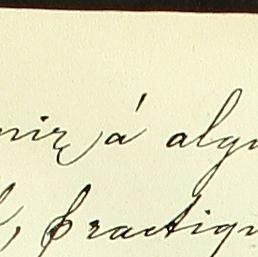 nir á algu
, practiqu